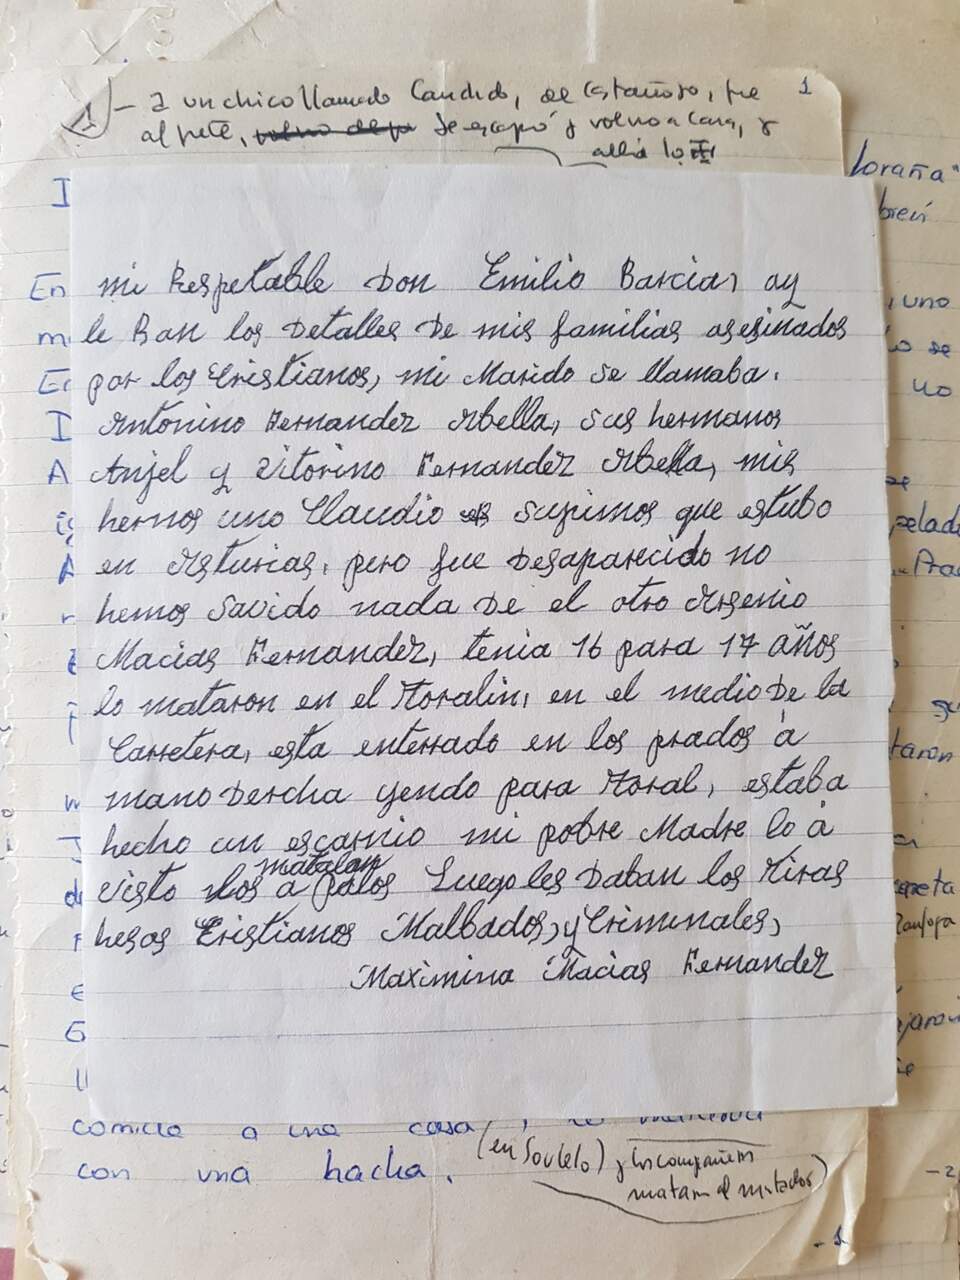 1 - a un chico llamado Candido, de Castañoso, fue 1
al frete, volvio de Se escapó y volvio a casa, y
alli lo
I
Loraña"
breis
En
, uno
m
lo se
En
uno
I
A
se
pelado
A
Prac
taron
mi Respetable Don Emilio Barcia, ay
le Ban los Detalles De mis familias asesinados
por los Cristianos, mi Marido Se llamaba.
Antonino Fernandez Abella, Sus hermanos
Anjel y Vitorino Fernandez Abella, mis
hernos uno Claudio es supimos que estubo
en Asturias, pero fue Desaparecido no
hemos Savido nada De el otro Arsenio
Macias Fernandez, tenia 16 para 17 años
lo mataron en el Moralin, en el medio De la
Carretera, esta enterrado en los prados á
mano Dercha yendo para Moral, estaba
hecho un escarnio mi pobre Madre lo á
visto los matalan a palos Luego les Daban los Tiros
hesos Cristianos Malbados, y Criminales,
Maximina Macias Fernandez
comida a una casa,
con una hacha. (en Soutelo) y los compañeros
matam al matador)